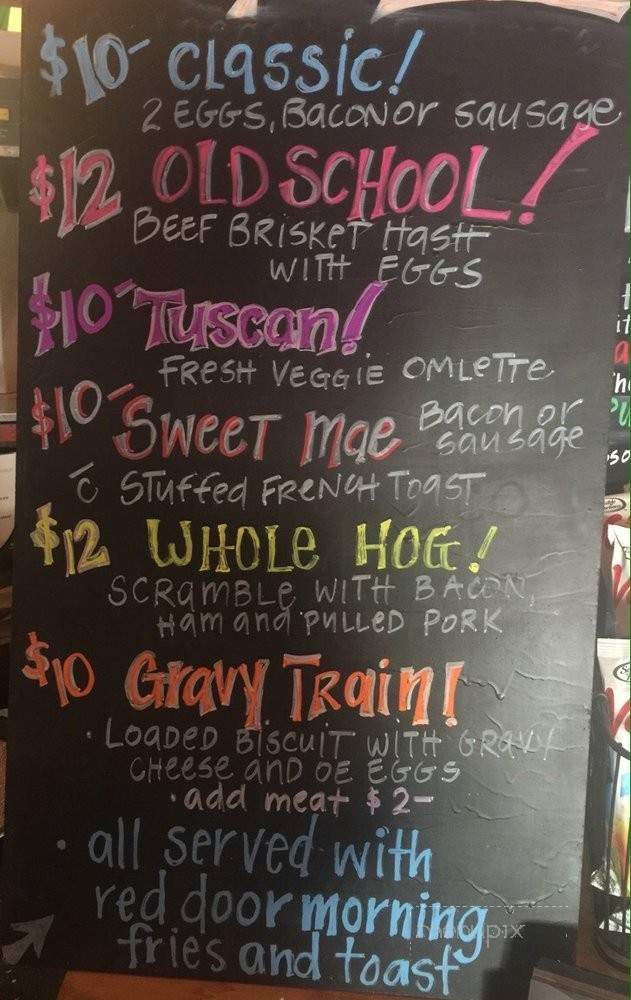 $10- Classic!
2 EGGS, Bacon or sausage
$12 OLD SCHOOL!
BEEF BRISKET HasH
WITH EGGS
$10- Tuscan!
FRESH VEGGIE OMLeTTe
$10- SWEET Mae Bacon or
sausage
c̄ STuffed FReNcH ToaST
$12 WHOLe HOG!
SCRamBLe WITH BACON,
Ham and PULLeD PoRK
$10 Gravy TRain!
· LOADED BiSCUIT WITH GRAVY
CHeese and OE EGGS
· add meat $2-
· all served with
red door morning
fries and toast